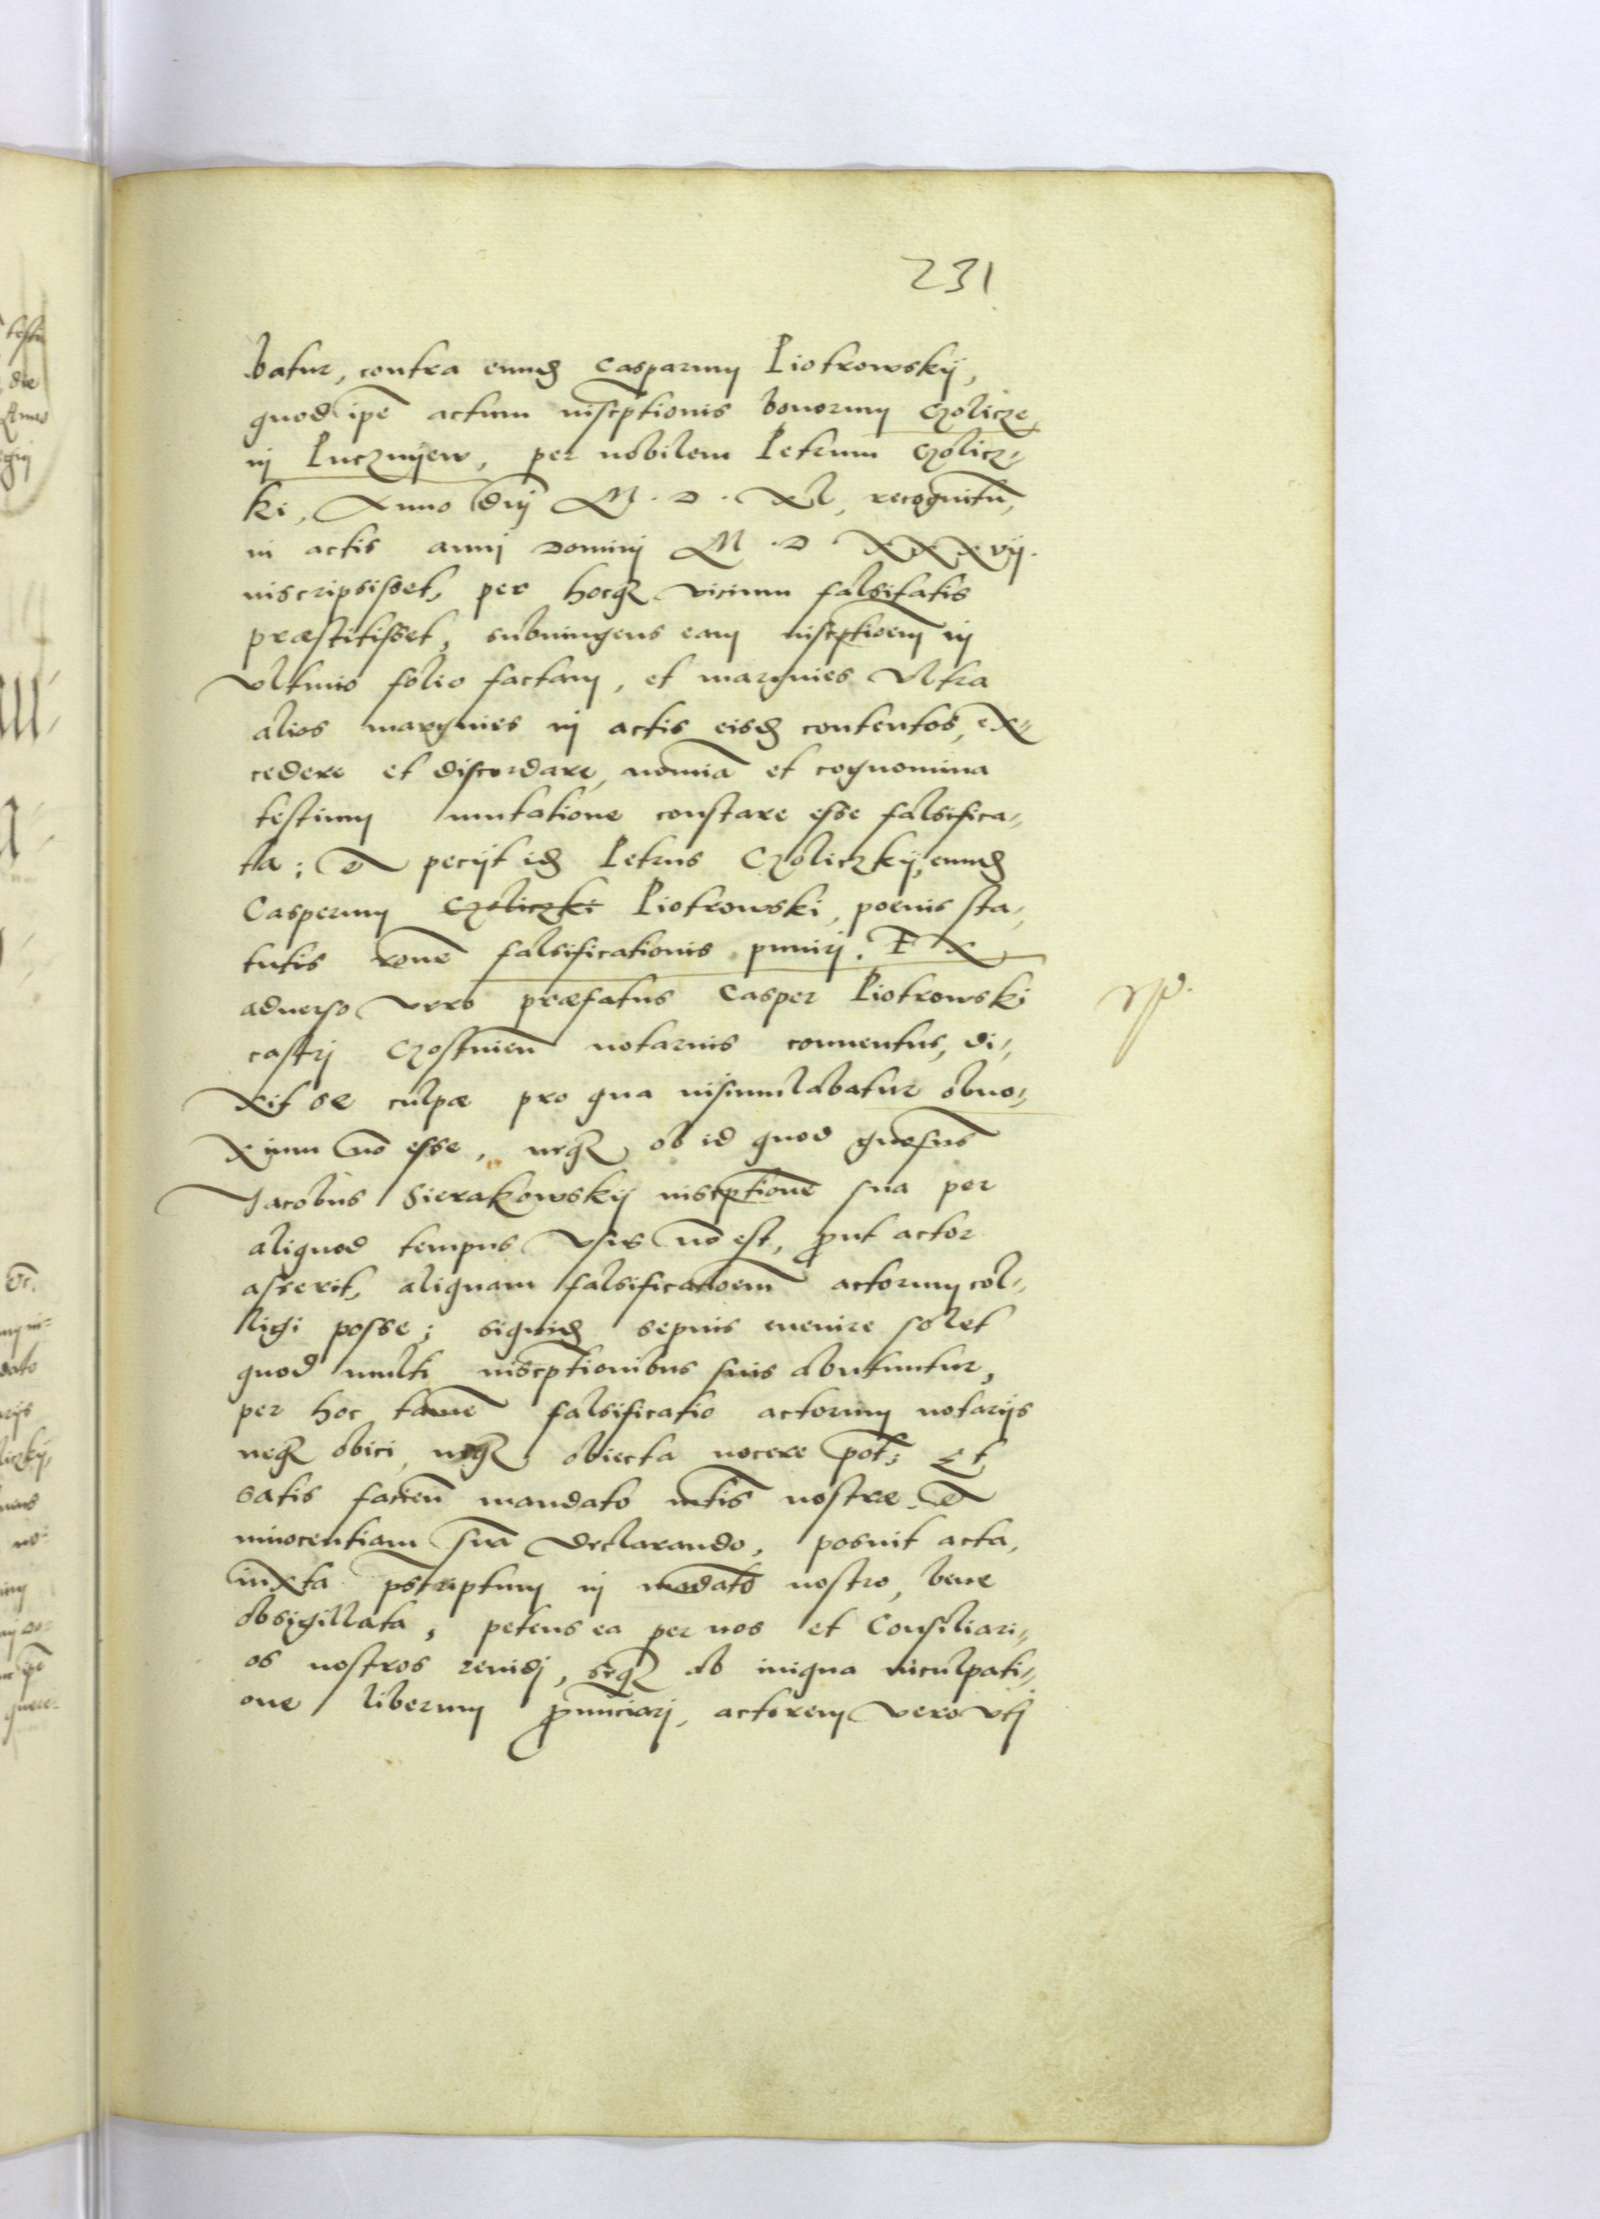 231
batur, contra eund Casparum Piotrowskij,
quod ipe actum inscptionis bonorum Czolicze
in Lucznijew, per nobilem Petrum Czolicz,,
ki, Anno dnj M. D. XL, recognitu,
in actis annj Dominj M. D. XXXVij.
inscripsisset, per hocq vicium falsitatis
præstitisset, subiungens eam inscptioem in
vltimo folio factam, et margines vltra
alios margines in actis eisd contentos, ex,,
cedere et discordare, nomia et cognomina
testium mutatione constare esse falsifica,,
ta; Et pecijt id Petrus Czoliczkij, eund
Casperum Czoliczki Piotrowski, poenis sta,,
tutis rone falsificationis punirj. Ex
aduerso vero præfatus Casper Piotrowski
castrj Czostnien notarius conuentus, di,,
xit se culpæ pro qua insimulabatur obno,,
xium no esse, neq ob id quod gnosus
Jacobus Sierakowskij inscptione sua per
aliquod tempus vsus no est, put actor
asserit, aliquam falsificatioem actorum col,,
ligi posse; siquid sepius euenire solet
quod multi inscptionibus suis abutuntur,
per hoc tame falsificatio actorum notarijs
neq obici, neq obiecta nocere pot; Et
satis facien mandato mtis nostræ. Et
innocentiam sua declarando, posuit acta,
iuxta pscriptum in madato nostro, bene
obsigillata, petens ea per nos et Consiliari,,
os nostros reuidj, seq ab iniqua inculpati,,
one liberum pnuciarj, actorem vero vtj